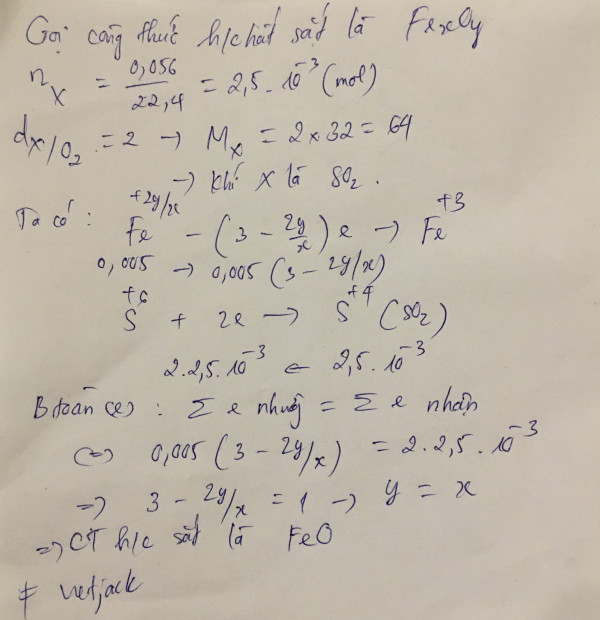 Gọi công thức h/c hất sắt là FexOy
nX = 0,056/22,4 = 2,5.10^-3 (mol)
dX/O2 = 2 → MX = 2×32 = 64
→ khí X là SO2.
Ta có: Fe^+2y/x - (3 - 2y/x) e → Fe^+3
0,005 → 0,005 (3 - 2y/x)
S^+6 + 2e → S^+4 (SO2)
2.2,5.10^-3 ← 2,5.10^-3
B toàn (e): Σ e nhường = Σ e nhận
(=) 0,005 (3 - 2y/x) = 2.2,5.10^-3
=> 3 - 2y/x = 1 → y = x
=> CT h/c sắt là FeO
# vietjack